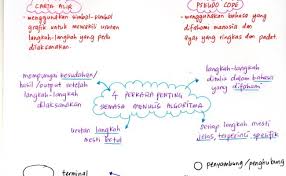 CARTA ALIR
-menggunakan simbol-simbol
grafik untuk mewakili urutan
langkah-langkah yang perlu
dilaksanakan
PSEUDO CODE
- menggunakan bahasa yang
difahami manusia dan
ayat yang ringkas dan padat.
mempunyai kesudahan/
hasil/output setelah
langkah-langkah
dilaksanakan
langkah-langkah
ditulis dalam bahasa
yang difahami
4 PERKARA PENTING
SEMASA MENULIS ALGORITMA
urutan langkah
mesti betul
setiap langkah mesti
jelas, terperinci, spesifik
terminal
penyambung/penghubung